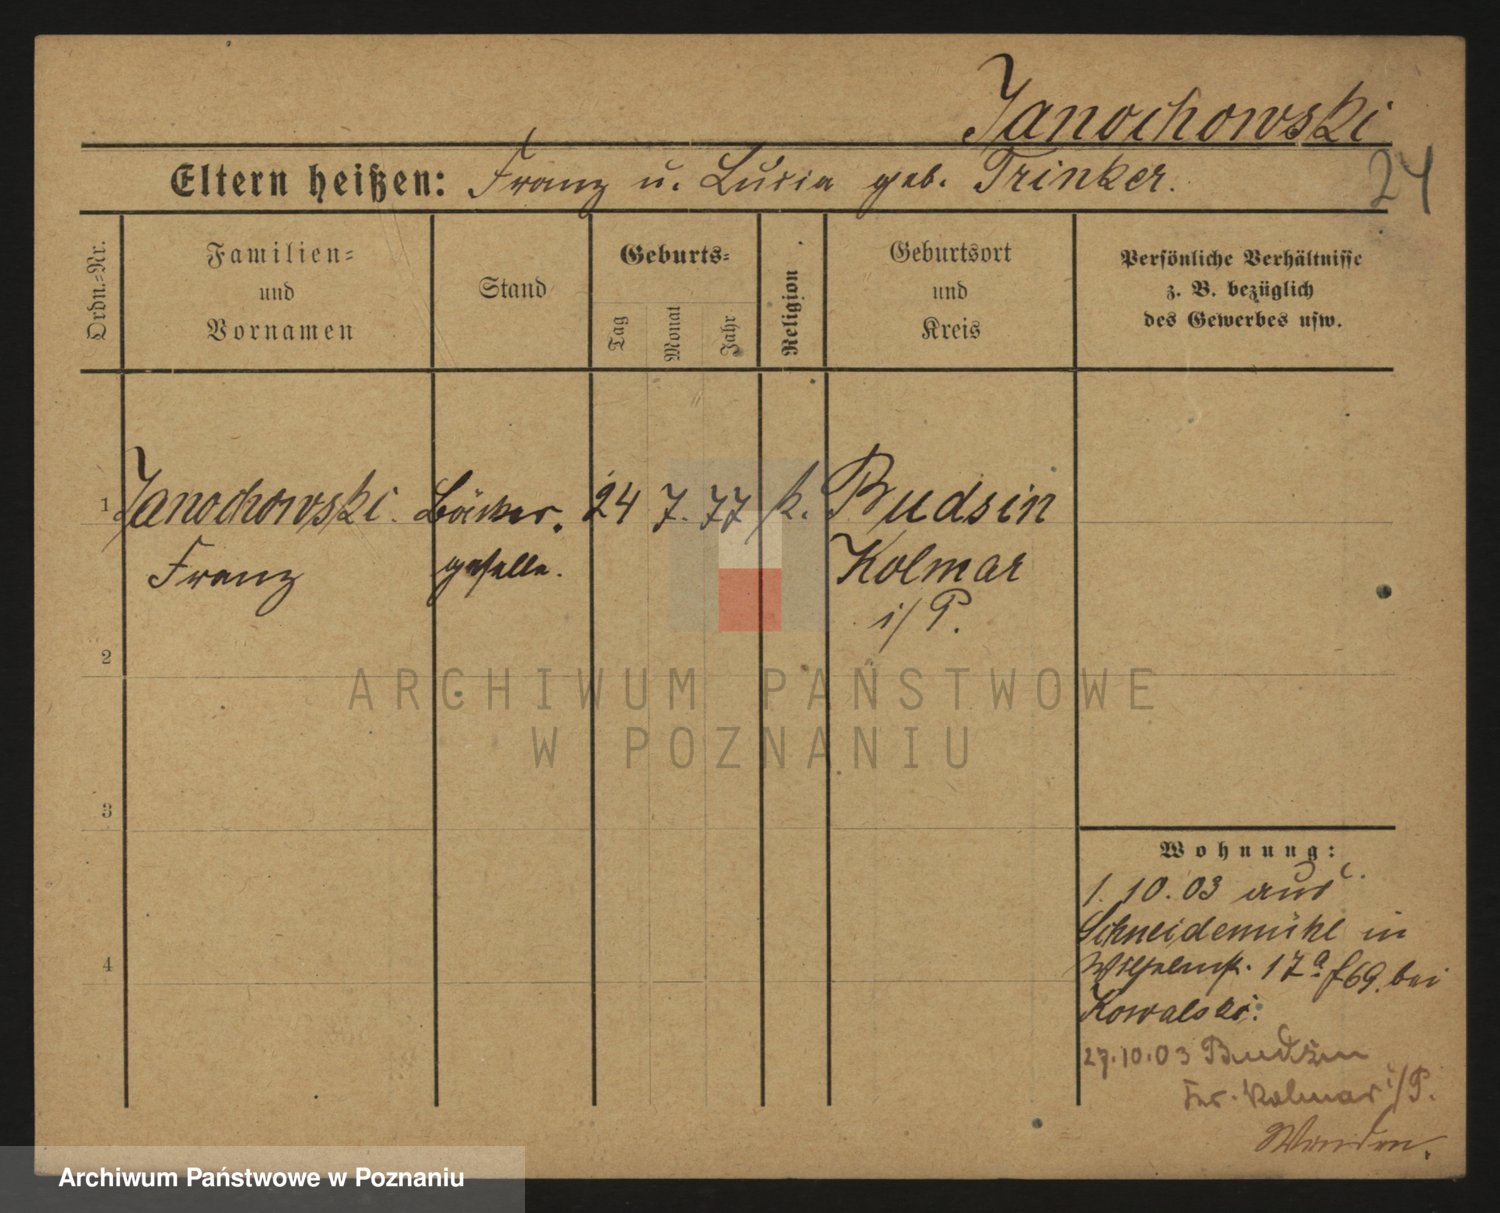 Janochowski
Eltern heißen: Franz u. Lucia geb. Trinker.
24
Ordn.-Nr.
Familien-
und
Vornamen
Stand
Geburts-
Tag
Monat
Jahr
Religion
Geburtsort
und
Kreis
Persönliche Verhältnisse
z. B. bezüglich
des Gewerbes usw.
1 Janochowski. Bäcker. 24 7. 77 k. Budsin
Franz geselle. Kolmar
i/P.
2
3
4
Wohnung:
1. 10. 03 aus
Schneidemühl in
Wilhelmst. 17a f69. bei
Kowalski.
27.10.03 Budsin
Kr. Kolmar i/P.
Wenden.
ARCHIWUM PAŃSTWOWE
W POZNANIU
Archiwum Państwowe w Poznaniu